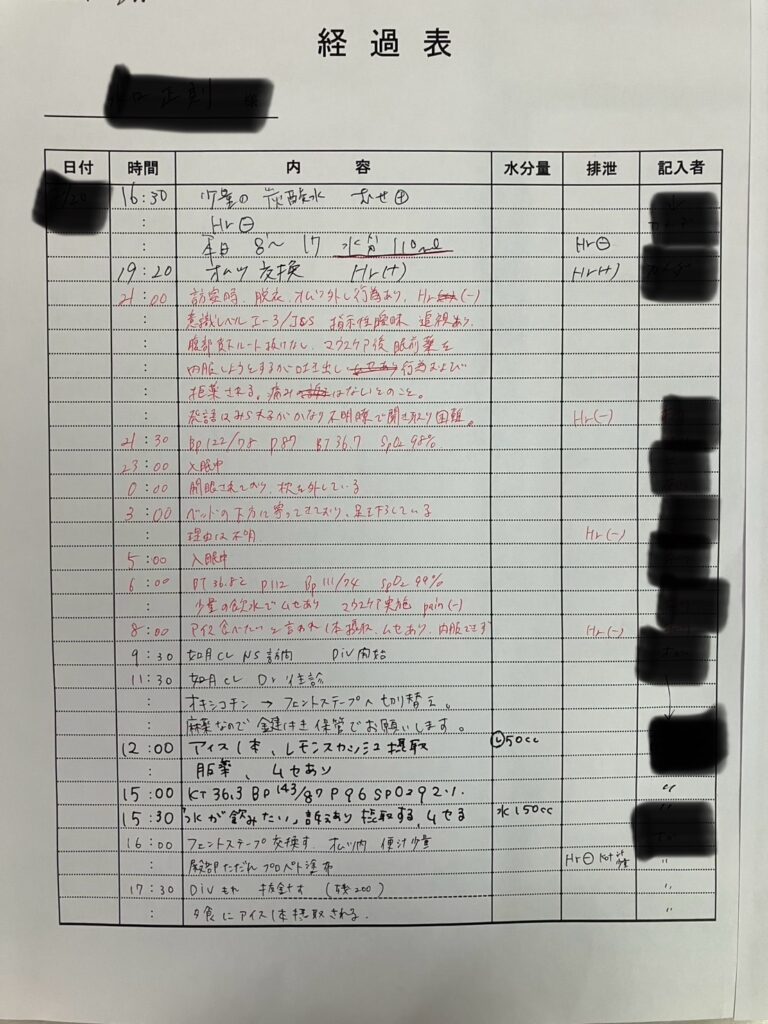 経過表
様
日付 時間 内容 水分量 排泄 記入者
16:30 少量の炭酸水 むせ⊕
Hr⊖
本日 8〜17 水分 110ml Hr⊖
19:20 オムツ交換 Hr(+) Hr(+)
21:00 訪室時、脱衣、オムツ外し行為あり、Hr (-)
意識レベルⅠ-3/JCS 指示性曖昧 追視あり、
腹部皮下ルート抜けなし、マウスケア後眠前薬を
内服しようとするが吐き出し 行為および
拒薬される。痛み はないとのこと。
発語はみられるがかなり不明瞭で聞き取り困難。 Hr(-)
21:30 Bp122/78 P87 BT36.7 SpO2 98%
23:00 入眠中
0:00 開眼されており、枕を外している
3:00 ベッドの下方に寄ってきており、足を下ろしている
理由は不明 Hr(-)
5:00 入眠中
6:00 BT36.8℃ P112 Bp111/74 SpO2 99%
少量の飲水でムセあり マウスケア実施 pain(-)
8:00 アイス食べたいと言われ1本摂取、ムセあり、内服できず Hr(-)
9:30 如月CL NS訪問 DIV開始
11:30 如月CL Dr往診
オキシコチン→フェントステープへ切り替え。
麻薬なので鍵付き保管でお願いします。
12:00 アイス1本、レモンスカッシュ摂取 50cc
服薬、ムセあり
15:00 KT36.3 BP143/87 P96 SPO2 92%
15:30 「水が飲みたい」訴えあり摂取する、ムセる 水150cc
16:00 フェントステープ交換す オムツ内 便汁少量
臀部ただれプロペト塗布 Hr⊖ kot 少量 〃
17:30 DIVもれ 抜針す (残200) 〃
夕食にアイス1本摂取される. 〃